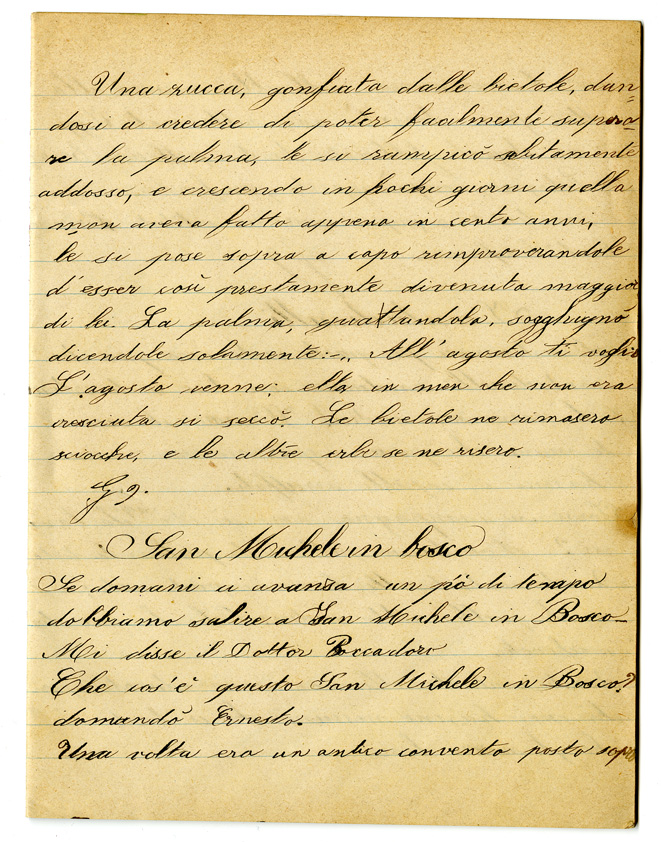 Una zucca, gonfiata dalle bietole, dan=
dosi a credere di poter facilmente supera-
re la palma, le si rampicò subitamente
addosso, e crescendo in pochi giorni quella
non aveva fatto appena in cento anni,
le si pose sopra a capo rimproverandole
d'esser così prestamente divenuta maggior
di lei. La palma, guattandola, sogghignò
dicendole solamente:-. All'agosto ti voglio
L'agosto venne; ella in men che non era
cresciuta si seccò. Le bietole ne rimasero
sciocche, e le altre erbe se ne risero.
G g.
San Michele in bosco
Se domani ci avanza un pò di tempo
dobbiamo salire a San Michele in Bosco-
Mi disse il Dottor Boccadoro
Che cos'è questo San Michele in Bosco?
domandò Ernesto.
Una volta era un antico convento posto sopra